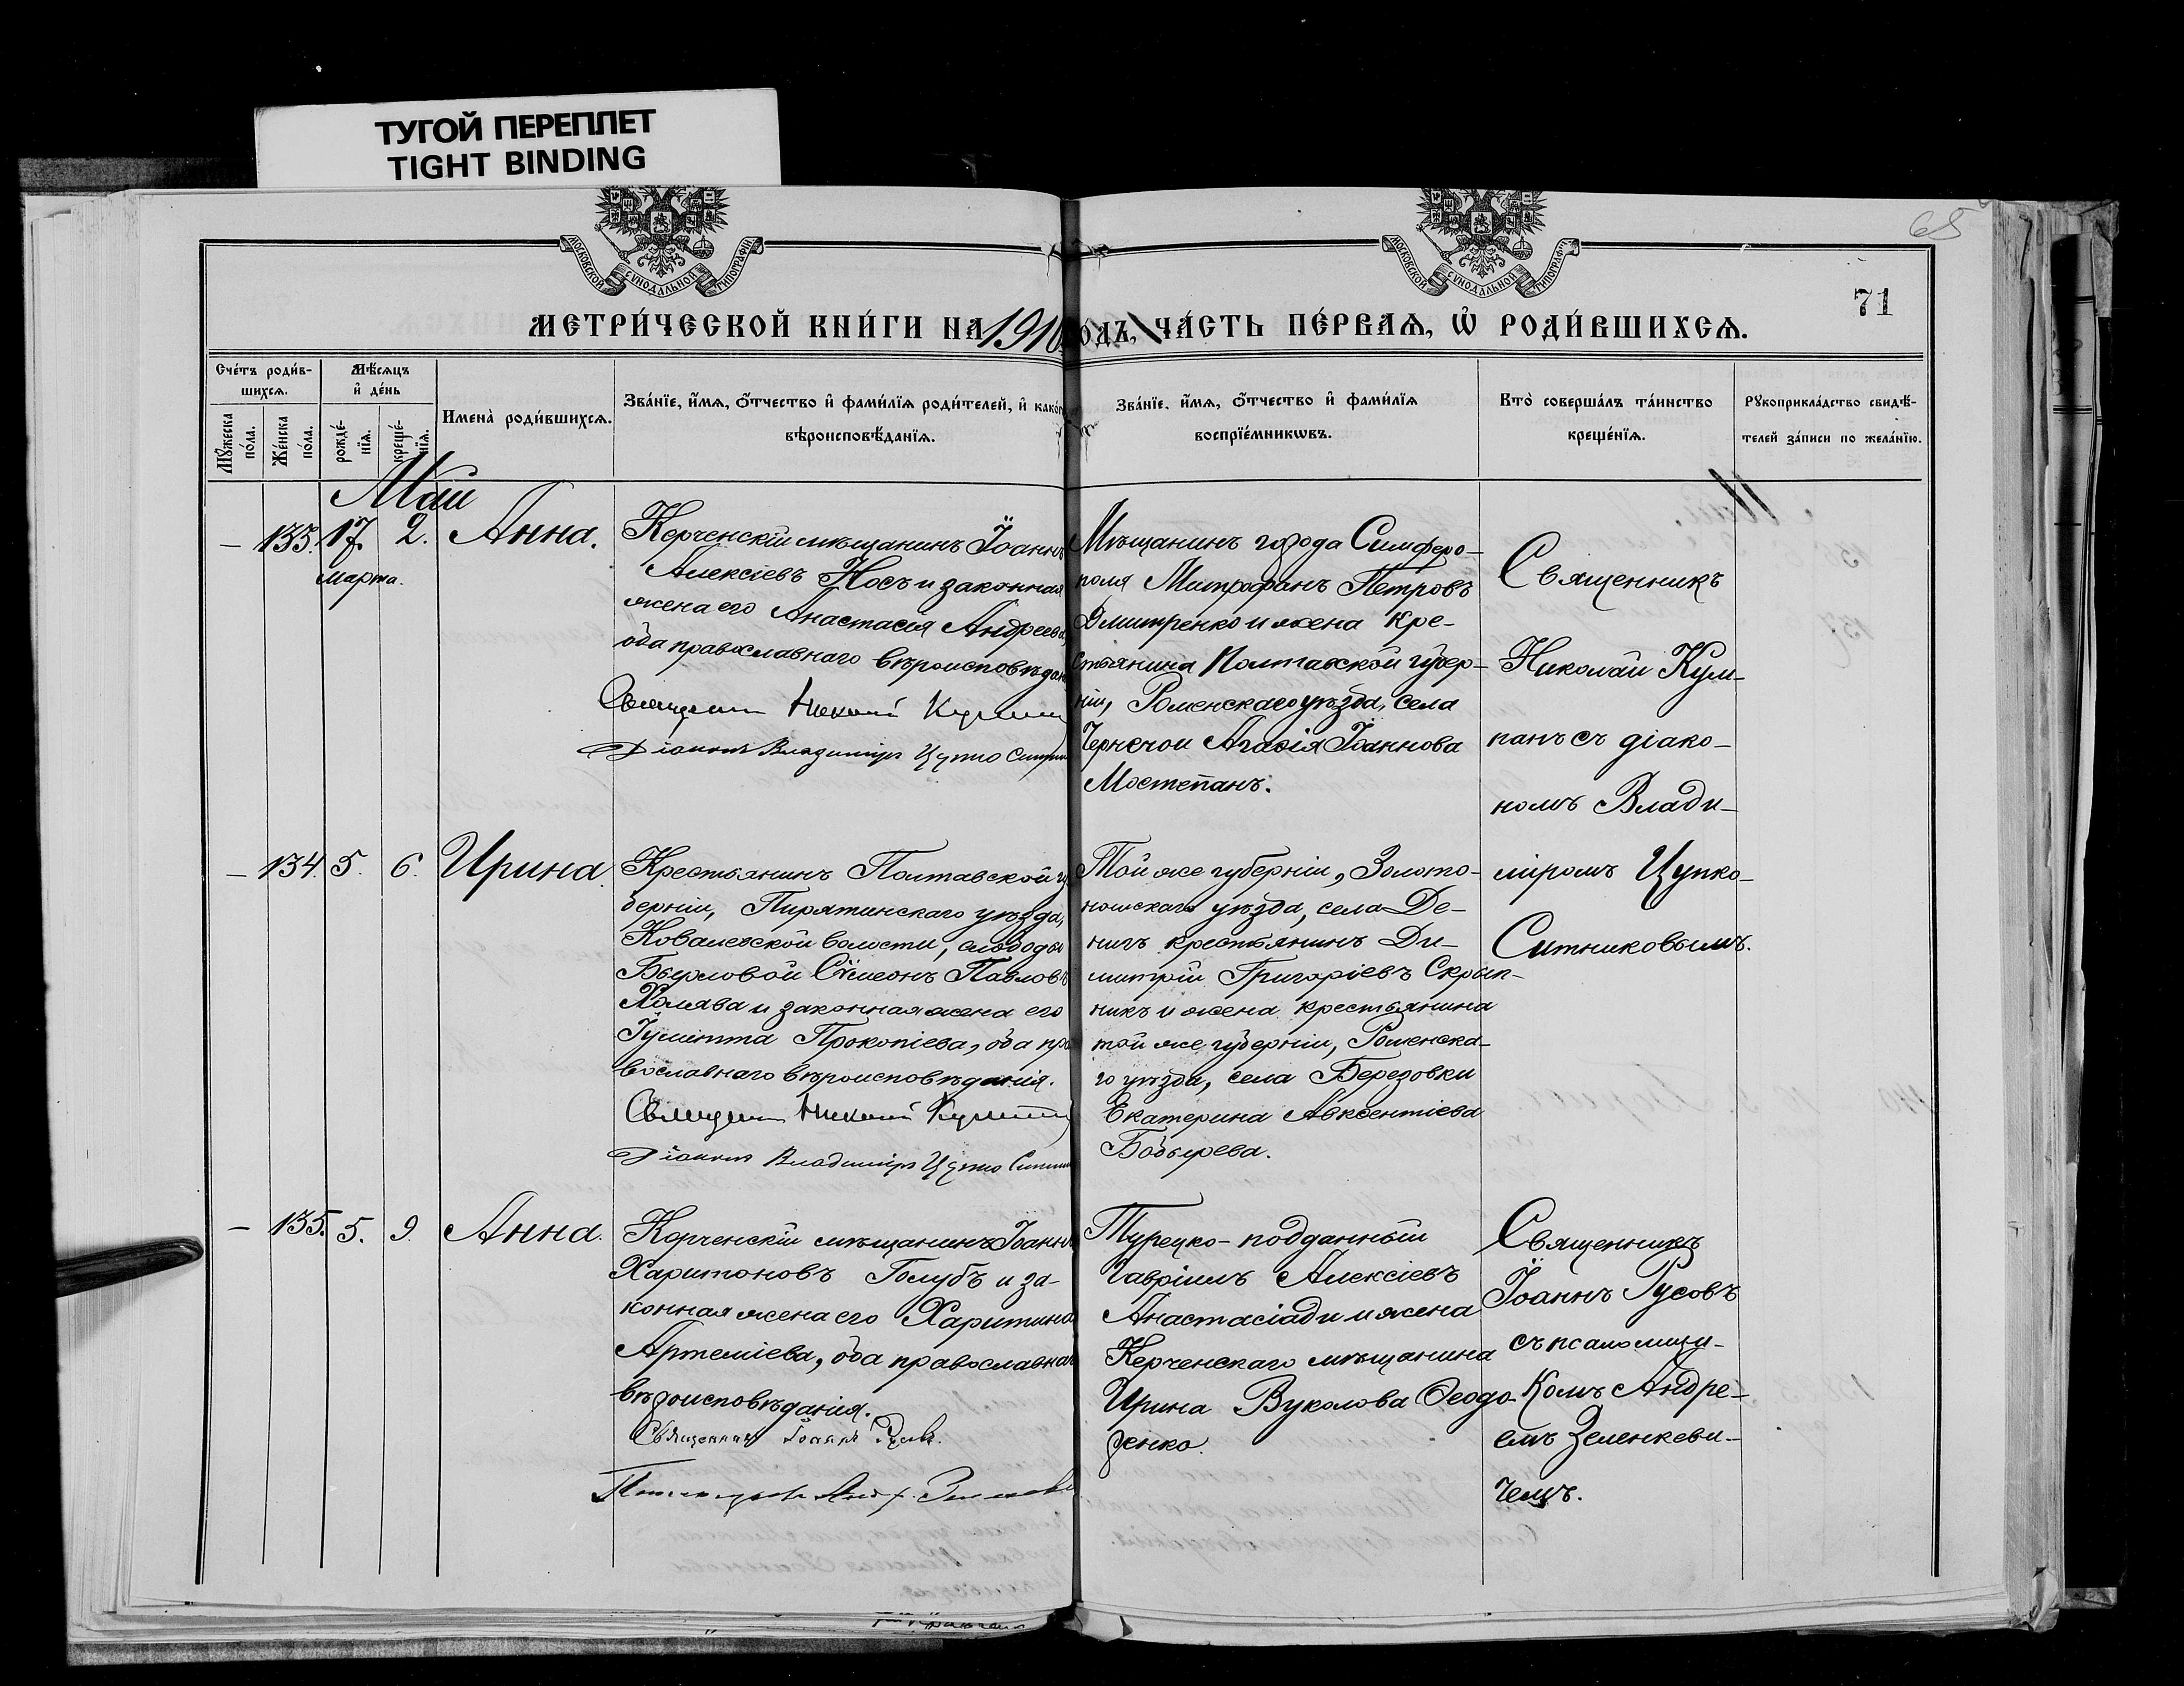 ТУГОЙ ПЕРЕПЛЕТ
TIGHT BINDING
МОСКОВСКОЙ СѴНОДАЛЬНОЙ ТИПОГРАФІИ
МОСКОВСКОЙ СѴНОДАЛЬНОЙ ТИПОГРАФІИ
65
71
МЕТРИ́ЧЕСКОЙ КНИ́ГИ НА 1910 ГОДЪ, ЧА́СТЬ ПЕ́РВАѦ, Ѡ҆ РОДИ́ВШИХСѦ.
Сче́тъ роди́в-
шихсѧ.
Мꙋ́жеска
по́ла.
Же́нска
по́ла.
Мѣ́сѧцъ
и҆ де́нь
рожде́-
нїѧ.
креще́-
нїѧ.
Имена̀ роди́вшихсѧ.
Зва́нїе, и҆́мѧ, ѻ҆́тчество и҆ фами́лїѧ роди́телей, и҆ како́гѡ
вѣроисповѣ́данїѧ.
Зва́нїе, и҆́мѧ, ѻ҆́тчество и҆ фами́лїѧ
воспрїе́мникѡвъ.
Кто̀ соверша́лъ та́инство
креще́нїѧ.
Рꙋкоприкла́дство свидѣ́-
телей за́писи по жела́нїю.
Май
— 133. 17. 2. Анна.
марта.
Керченскій мѣщанинъ Іоаннъ
Алексіевъ Носъ и законная
жена его Анастасія Андреева,
оба православнаго вѣроисповѣдан
Священникъ Николай Кулпан
Діаконъ Владиміръ Цупко Ситни
Мѣщанинъ города Симферо-
поля Митрофанъ Петровъ
Дмитренко и жена кре-
стьянина Полтавской губер-
ніи, Роменскаго уѣзда, села
Чернечои Агафія Іоаннова
Мостепанъ.
Священникъ
Николай Кул-
панъ съ діако-
номъ Влади-
міромъ Цупко-
Ситниковымъ.
— 134. 5. 6. Ирина.
Крестьянинъ Полтавской гу
берніи, Пирятинскаго уѣзда,
Ковалевской волости, слободы
Бырловой Сѵмеонъ Павловъ
Халява и законная жена его
Іулитта Прокопіева, оба пра
вославнаго вѣроисповѣданія.
Священникъ Николай Кулпан
Діаконъ Владиміръ Цупко Ситни
Той же губерніи, Золото-
ношскаго уѣзда, села Де-
нигъ крестьянинъ Ди-
митрій Григоріевъ Скрып-
никъ и жена крестьянина
той же губерніи, Роменска-
го уѣзда, села Березовки
Екатерина Авксентіева
Бобырева.
— 135. 5. 9. Анна.
Керченскій мѣщанинъ Іоаннъ
Харитоновъ Голубъ и за-
конная жена его Харитина
Артеміева, оба православнаг
вѣроисповѣданія.
Священникъ Іоаннъ Русовъ.
Псаломщикъ Андр. Зеленкеви
Турецко-подданный
Гавріилъ Алексіевъ
Анастасіади и жена
Керченскаго мѣщанина
Ирина Вуколова Ѳеодо-
ренко.
Священникъ
Іоаннъ Русовъ
съ псаломщи-
комъ Андре-
емъ Зеленкеви-
чемъ.